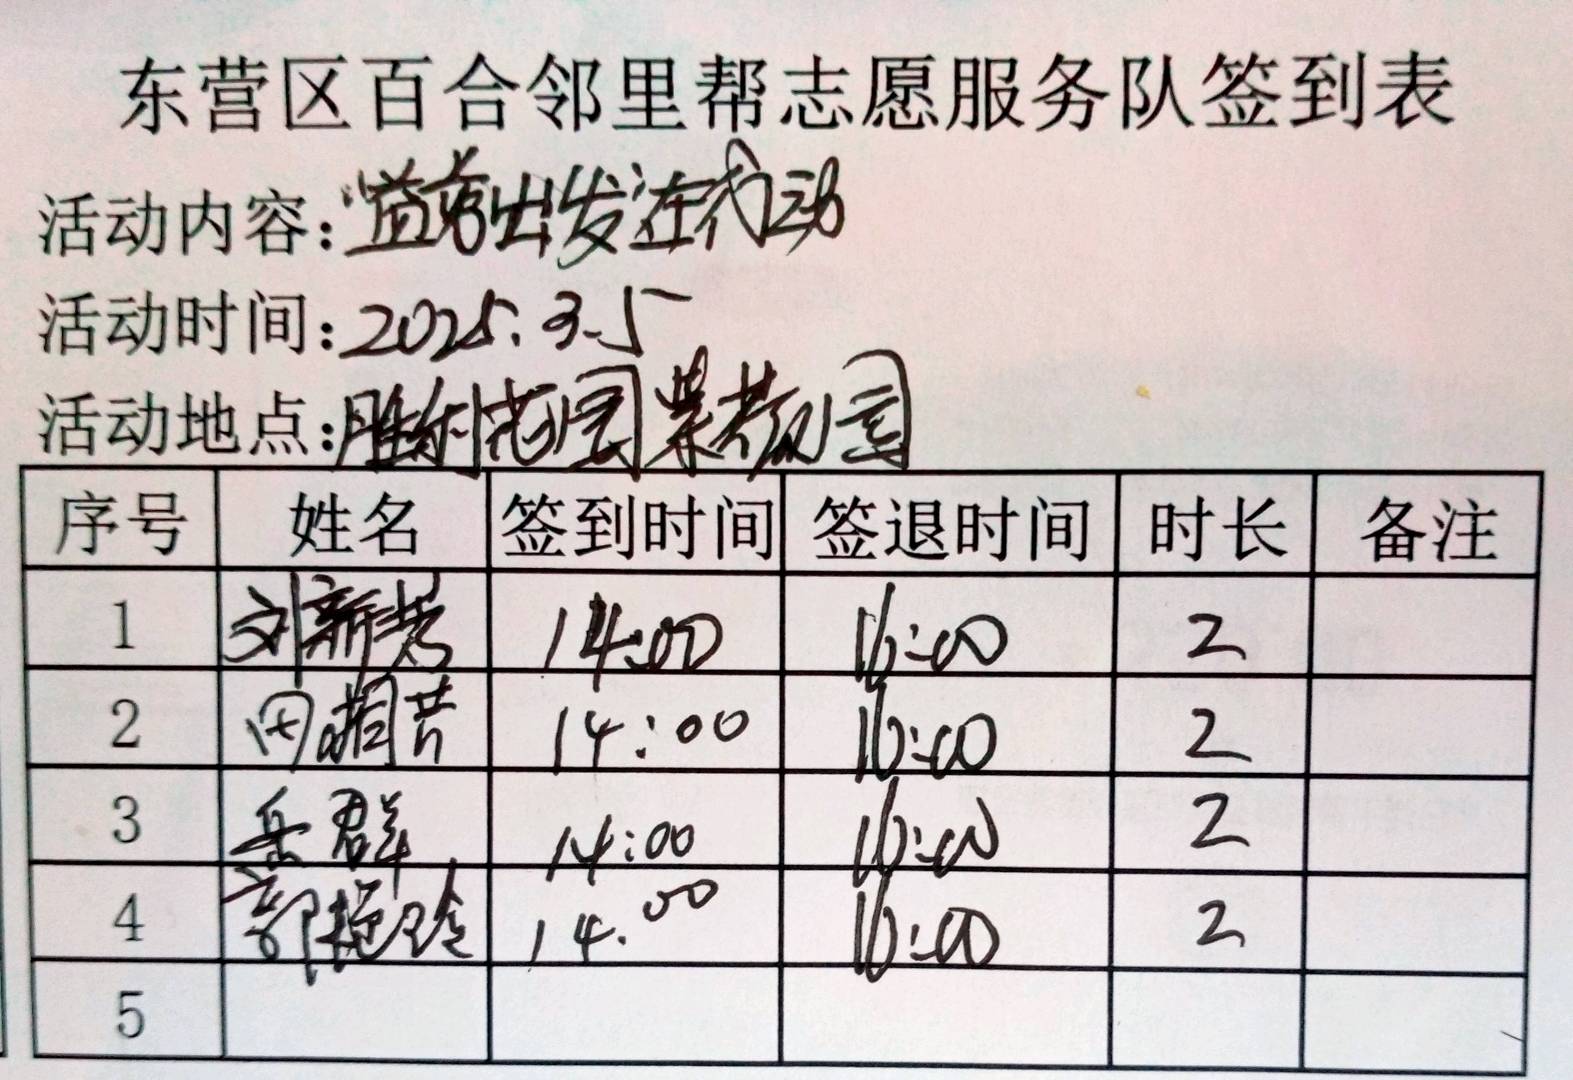 东营区百合邻里帮志愿服务队签到表
活动内容：“益苗出发”在行动
活动时间：2025.3.5
活动地点：胜利花园紫荆园
序号 姓名 签到时间 签退时间 时长 备注
1 刘新 14:00 16:00 2
2 田 14:00 16:00 2
3 岳群 14:00 16:00 2
4 郭艳玲 14.00 16:00 2
5